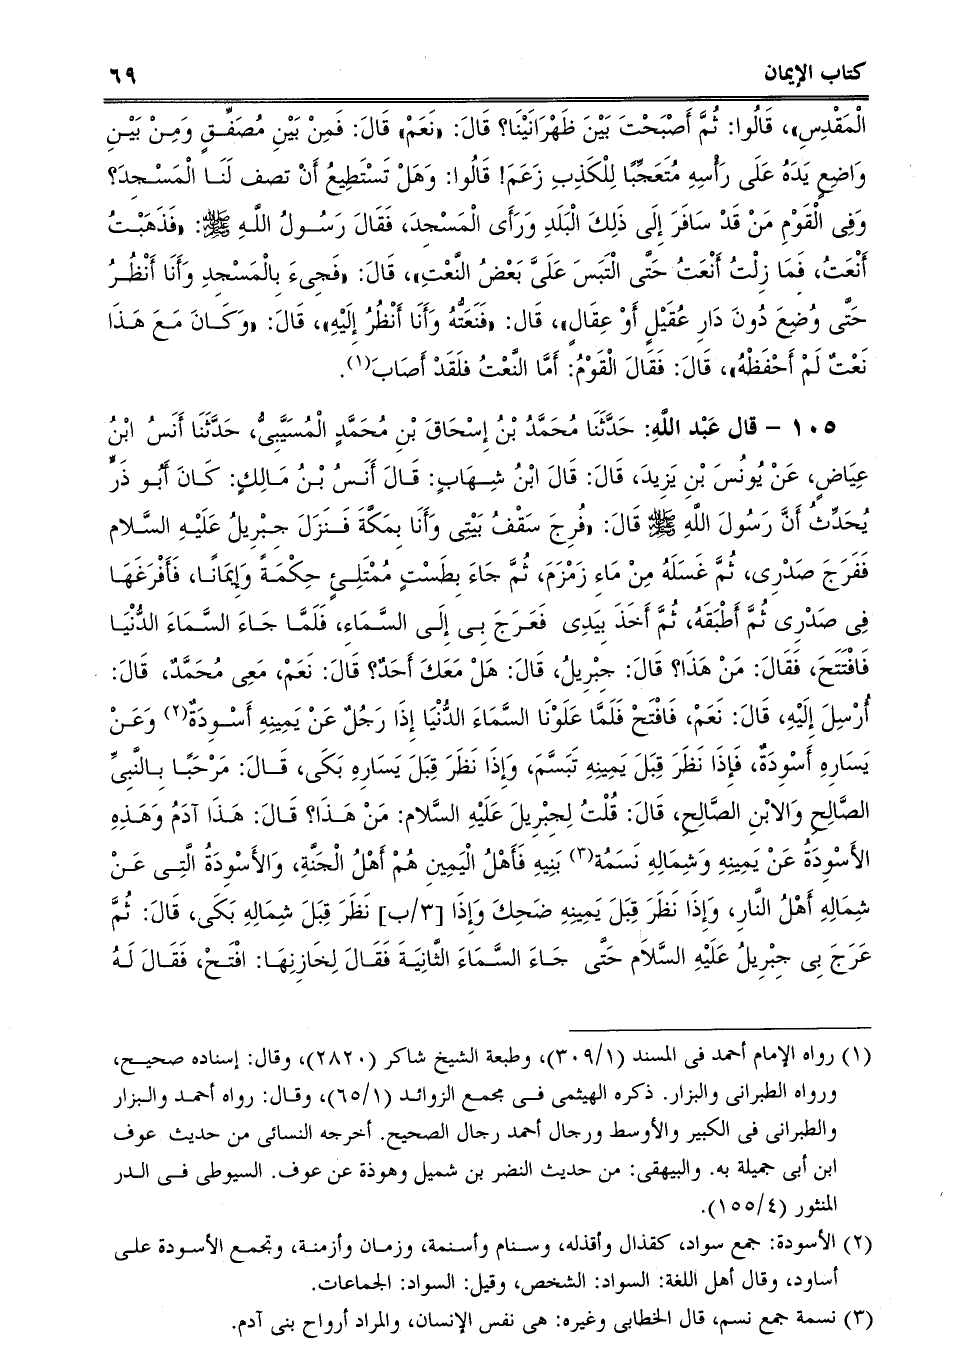 كتاب الإيمان ٦٩
الْمَقْدِسِ»، قَالُوا: ثُمَّ أَصْبَحْتَ بَيْنَ ظَهْرَانَيْنَا؟ قَالَ: «نَعَمْ» قَالَ: فَمِنْ بَيْنِ مُصَفِّقٍ وَمِنْ بَيْنِ
وَاضِعٍ يَدَهُ عَلَى رَأْسِهِ مُتَعَجِّبًا لِلْكَذِبِ زَعَمَ! قَالُوا: وَهَلْ تَسْتَطِيعُ أَنْ تصف لَنَا الْمَسْجِدَ؟
وَفِى الْقَوْمِ مَنْ قَدْ سَافَرَ إِلَى ذَلِكَ الْبَلَدِ وَرَأَى الْمَسْجِدَ، فَقَالَ رَسُولُ اللَّهِ ﷺ: «فَذَهَبْتُ
أَنْعَتُ، فَمَا زِلْتُ أَنْعَتُ حَتَّى الْتَبَسَ عَلَىَّ بَعْضُ النَّعْتِ»، قَالَ: «فَجِىءَ بِالْمَسْجِدِ وَأَنَا أَنْظُرُ
حَتَّى وُضِعَ دُونَ دَارِ عُقَيْلٍ أَوْ عِقَالٍ»، قال: «فَنَعَتُّهُ وَأَنَا أَنْظُرُ إِلَيْهِ»، قَالَ: «وَكَانَ مَعَ هَذَا
نَعْتٌ لَمْ أَحْفَظْهُ»، قَالَ: فَقَالَ الْقَوْمُ: أَمَّا النَّعْتُ فلَقَدْ أَصَابَ(١).
١٠٥ - قال عَبْد اللَّهِ: حَدَّثَنَا مُحَمَّدُ بْنُ إِسْحَاقَ بْنِ مُحَمَّدٍ الْمُسَيَّبِىُّ، حَدَّثَنَا أَنَسُ ابْنُ
عِيَاضٍ، عَنْ يُونُسَ بْنِ يَزِيدَ، قَالَ: قَالَ ابْنُ شِهَابٍ: قَالَ أَنَسُ بْنُ مَالِكٍ: كَانَ أَبُو ذَرٍّ
يُحَدِّثُ أَنَّ رَسُولَ اللَّهِ ﷺ قَالَ: «فُرِجَ سَقْفُ بَيْتِى وَأَنَا بِمَكَّةَ فَنَزَلَ جِبْرِيلُ عَلَيْهِ السَّلام
فَفَرَجَ صَدْرِى، ثُمَّ غَسَلَهُ مِنْ مَاءِ زَمْزَمَ، ثُمَّ جَاءَ بِطَسْتٍ مُمْتَلِئٍ حِكْمَةً وَإِيمَانًا، فَأَفْرَغَهَا
فِى صَدْرِى ثُمَّ أَطْبَقَهُ، ثُمَّ أَخَذَ بِيَدِى فَعَرَجَ بِى إِلَى السَّمَاءِ، فَلَمَّا جَاءَ السَّمَاءَ الدُّنْيَا
فَافْتَتَحَ، فَقَالَ: مَنْ هَذَا؟ قَالَ: جِبْرِيلُ، قَالَ: هَلْ مَعَكَ أَحَدٌ؟ قَالَ: نَعَمْ، مَعِى مُحَمَّدٌ، قَالَ:
أُرْسِلَ إِلَيْهِ، قَالَ: نَعَمْ، فَافْتَحْ فَلَمَّا عَلَوْنَا السَّمَاءَ الدُّنْيَا إِذَا رَجُلٌ عَنْ يَمِينِهِ أَسْوِدَةٌ(٢) وَعَنْ
يَسَارِهِ أَسْوِدَةٌ، فَإِذَا نَظَرَ قِبَلَ يَمِينِهِ تَبَسَّمَ، وَإِذَا نَظَرَ قِبَلَ يَسَارِهِ بَكَى، قَالَ: مَرْحَبًا بِالنَّبِىِّ
الصَّالِحِ وَالابْنِ الصَّالِحِ، قَالَ: قُلْتُ لِجِبْرِيلَ عَلَيْهِ السَّلام: مَنْ هَذَا؟ قَالَ: هَذَا آدَمُ وَهَذِهِ
الأَسْوِدَةُ عَنْ يَمِينِهِ وَشِمَالِهِ نَسَمُهُ(٣) بَنِيهِ فَأَهْلُ الْيَمِينِ هُمْ أَهْلُ الْجَنَّةِ، وَالأَسْوِدَةُ الَّتِى عَنْ
شِمَالِهِ أَهْلُ النَّارِ، وَإِذَا نَظَرَ قِبَلَ يَمِينِهِ ضَحِكَ وَإِذَا [٣/ب] نَظَرَ قِبَلَ شِمَالِهِ بَكَى، قَالَ: ثُمَّ
عَرَجَ بِى جِبْرِيلُ عَلَيْهِ السَّلَام حَتَّى جَاءَ السَّمَاءَ الثَّانِيَةَ فَقَالَ لِخَازِنِهَا: افْتَحْ، فَقَالَ لَهُ
(١) رواه الإمام أحمد فى المسند (٣٠٩/١)، وطبعة الشيخ شاكر (٢٨٢٠)، وقال: إسناده صحيح،
ورواه الطبرانى والبزار. ذكره الهيثمى فى مجمع الزوائد (٦٥/١)، وقال: رواه أحمد والبزار
والطبرانى فى الكبير والأوسط ورجال أحمد رجال الصحيح. أخرجه النسائى من حديث عوف
ابن أبى جميلة به. والبيهقى: من حديث النضر بن شميل وهوذة عن عوف. السيوطى فى الدر
المنثور (١٥٥/٤).
(٢) الأسودة: جمع سواد، كقذال وأقذله، وسنام وأسنمة، وزمان وأزمنة، وتجمع الأسودة على
أساود، وقال أهل اللغة: السواد: الشخص، وقيل: السواد: الجماعات.
(٣) نسمة جمع نسم، قال الخطابى وغيره: هى نفس الإنسان، والمراد أرواح بنى آدم.